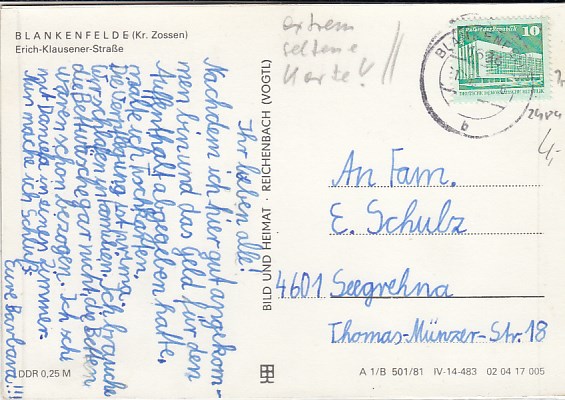 BLANKENFELDE (Kr. Zossen)
Erich-Klausener-Straße
extrem
seltene
Karte!
Palast der Republik
10
DEUTSCHE DEMOKRATISCHE REPUBLIK
b
2484
4,-
Ihr lieben alle!
Nachdem ich hier gut angekom-
men bin und das Geld für den
Aufenthalt abgegeben hatte,
mache ich
Die Versorgung ist prima.
Ich brauche
die Bettwäsche gar nicht, die Betten
waren schon bezogen. Ich
mit Daniela in einem Zimmer.
Nun mache ich Schluß.
Eure Barbara!!!
BILD UND HEIMAT · REICHENBACH (VOGTL)
An Fam.
E. Schulz
4601 Seegrehna
Thomas-Münzer-Str. 18
DDR 0,25 M
A 1/B 501/81 IV-14-483 02 04 17 005